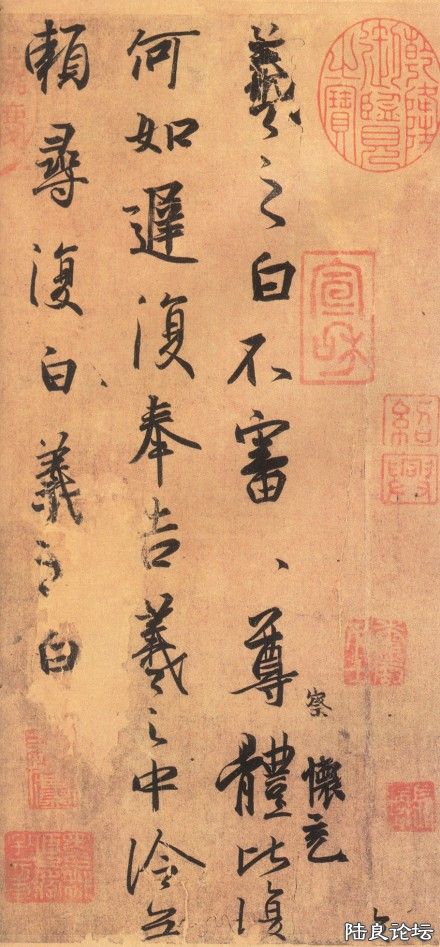 乾隆御覽之寶
宣和
紹興
羲之白不審、尊體比復
察
懷充
何如遲復奉告羲之中冷無
賴尋復白、羲之白
陆良论坛